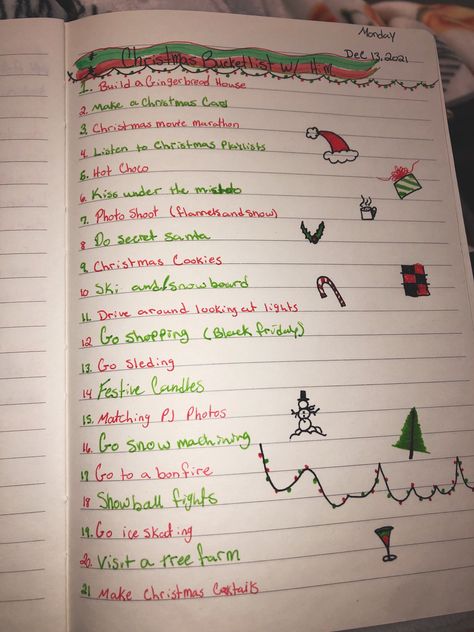 Monday
Dec 13, 2021
Christmas Bucketlist w/ Him
1. Build a Gingerbread House
2. Make a Christmas Card
3. Christmas movie marathon
4. Listen to Christmas Playlists
5. Hot Choco
6. Kiss under the
7. Photo Shoot (flannels and snow)
8 Do secret santa
9. Christmas Cookies
10. Ski and/snowboard
11. Drive around looking at lights
12 Go shopping (Black friday)
13. Go sleding
14 Festive Candles
15. Matching PJ Photos
16. Go snow machining
17 Go to a bonfire
18 Snowball fights
19. Go ice skating
20. Visit a tree farm
21 Make Christmas Cocktails